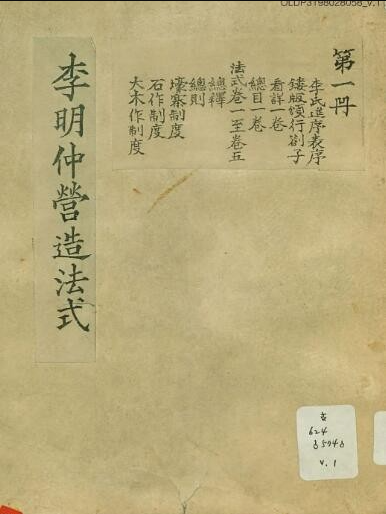 第一冊
李氏進序表序
鏤版頒行劄子
看詳一卷
總目一卷
法式卷一至卷五
總釋
總則
壕寨制度
石作制度
大木作制度
李明仲營造法式
624
v.1